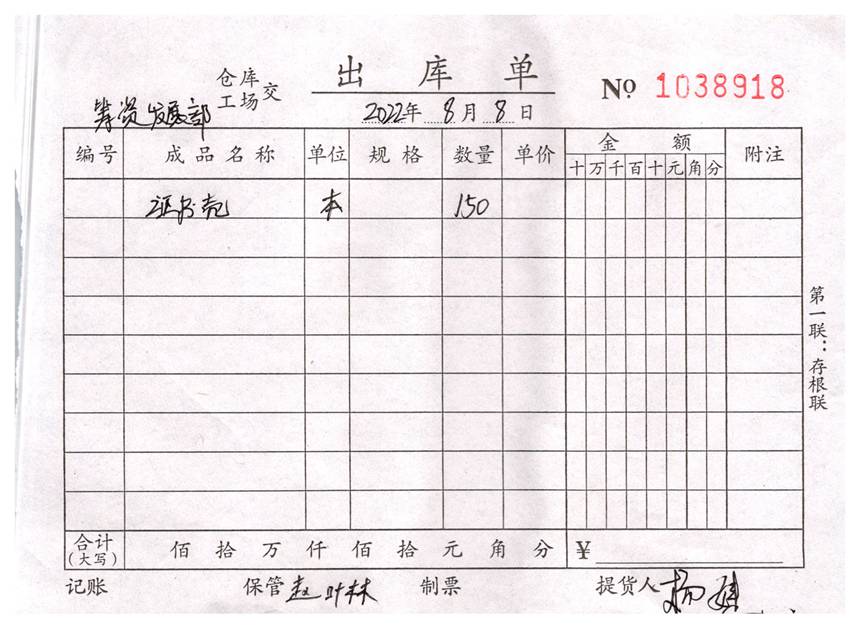 出 库 单
仓库
工场 交
筹资发展部
2022年 8月 8日
№ 1038918
编号 成品名称 单位 规格 数量 单价 金额 附注
十 万 千 百 十 元 角 分
证书壳 本 150
第一联：存根联
合计（大写） 佰 拾 万 仟 佰 拾 元 角 分 ¥
记账 保管 赵叶林 制票 提货人 杨